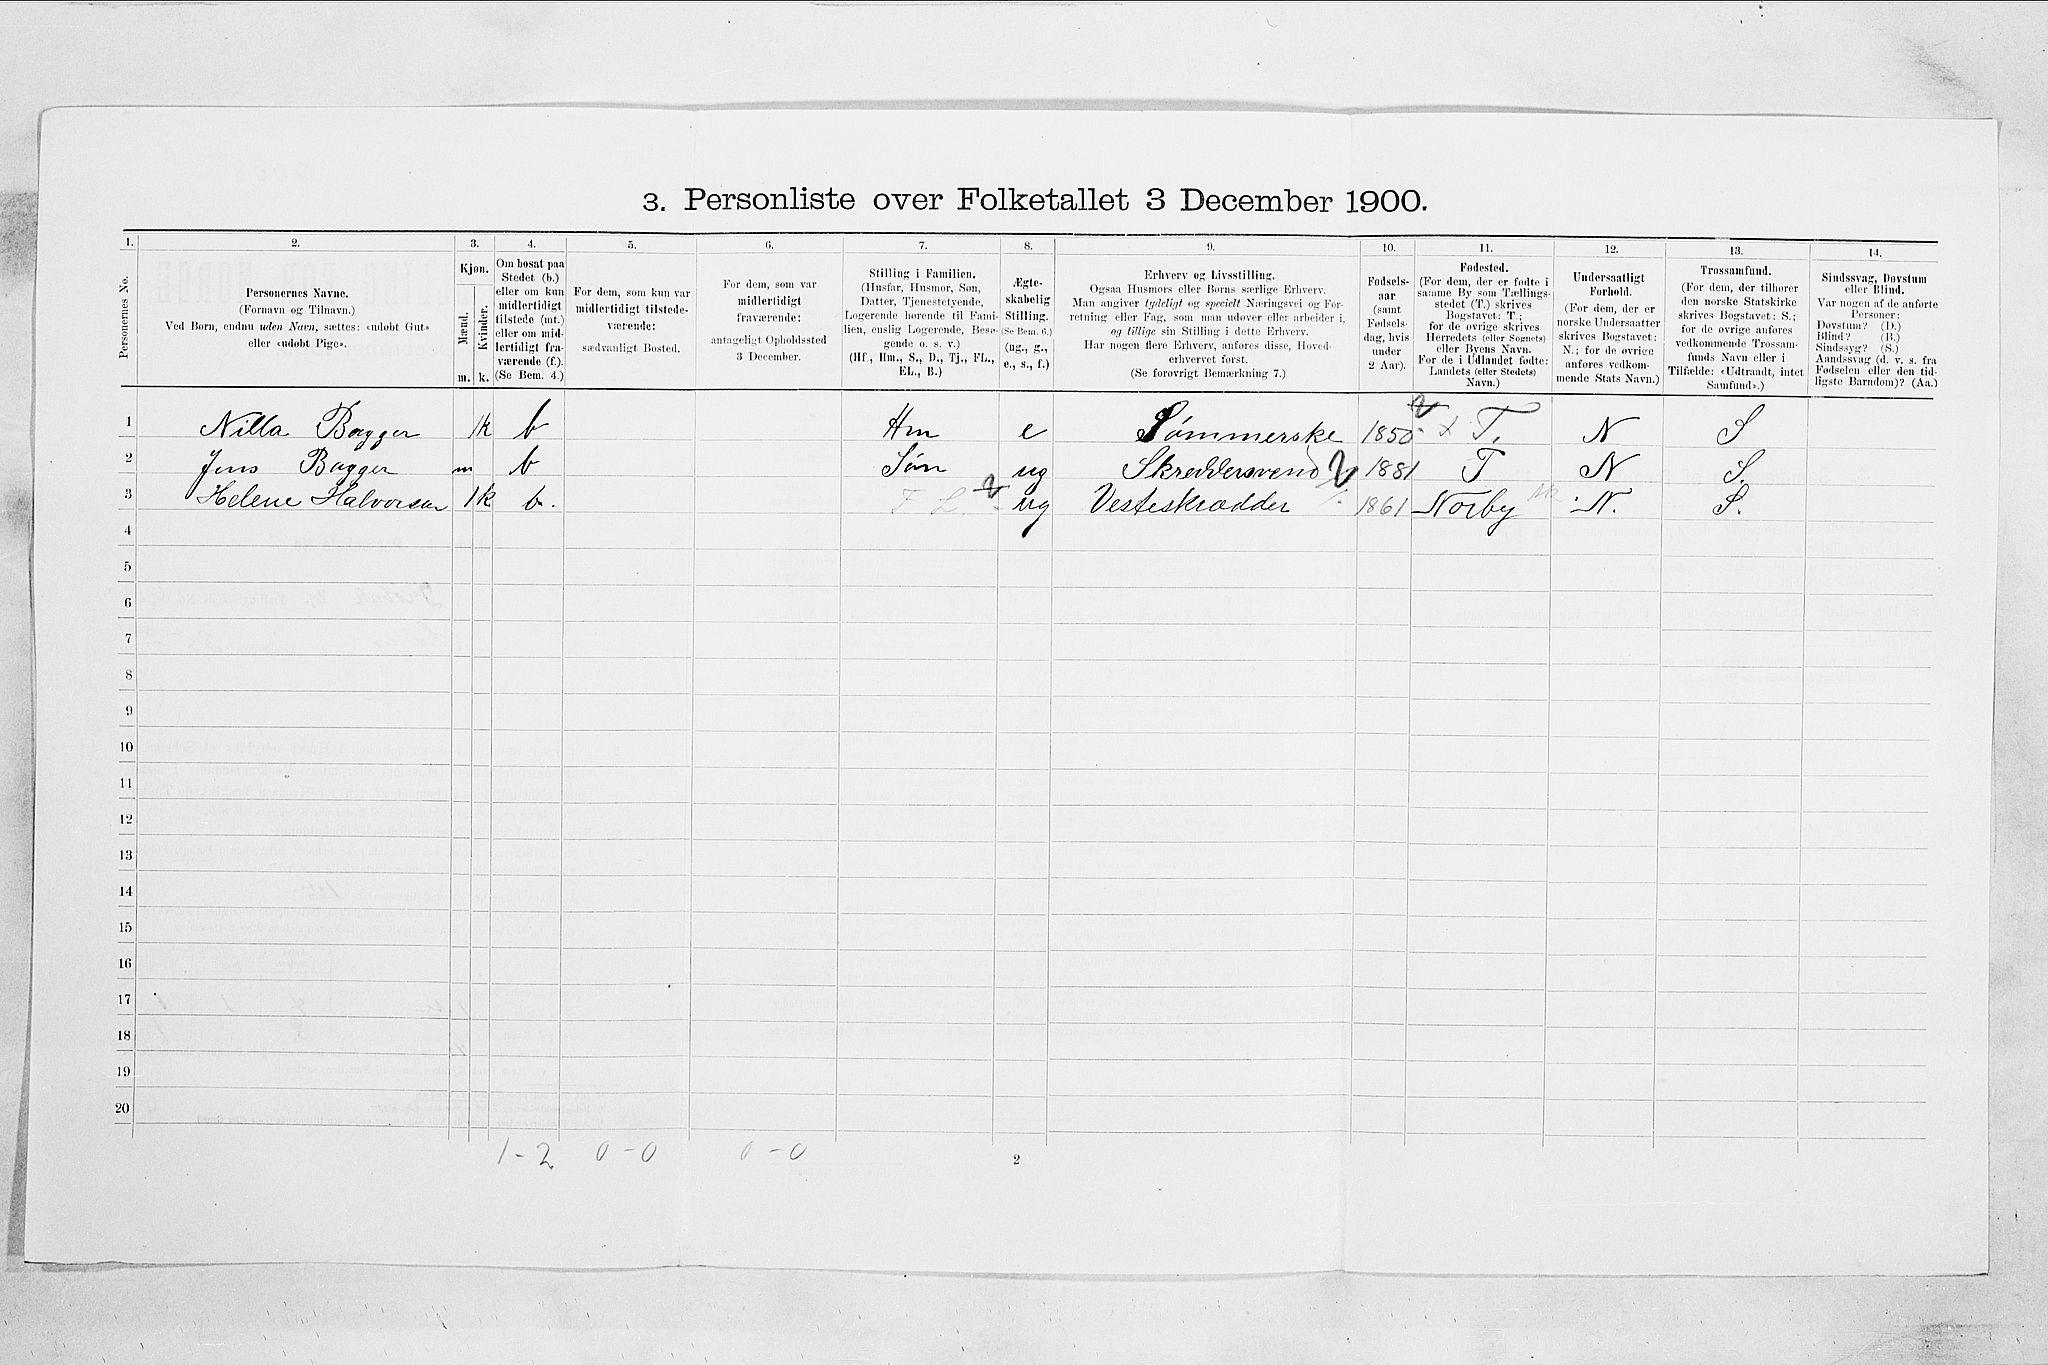 3. Personliste over Folketallet 3 December 1900.
1. 2. 3. 4. 5. 6. 7. 8. 9. 10. 11. 12. 13. 14.
Personernes No.
Personernes Navne.
(Fornavn og Tilnavn.)
Ved Børn, endnu uden Navn, sættes: «udøbt Gut»
eller «udøbt Pige».
Kjøn.
Mænd.
Kvinder.
m. k.
Om bosat paa
Stedet (b.)
eller om kun
midlertidigt
tilstede (mt.)
eller om mid-
lertidigt fra-
værende (f.).
(Se Bem. 4.)
For dem, som kun var
midlertidigt tilstede-
værende:
sædvanligt Bosted.
For dem, som var
midlertidigt
fraværende:
antageligt Opholdssted
3 December.
Stilling i Familien.
(Husfar, Husmor, Søn,
Datter, Tjenestetyende,
Logerende hørende til Fami-
lien, enslig Logerende, Besø-
gende o. s. v.)
(Hf., Hm., S., D., Tj., FL.,
EL., B.)
Ægte-
skabelig
Stilling.
(Se Bem. 6.)
(ug., g.,
e., s., f.)
Erhverv og Livsstilling.
Ogsaa Husmors eller Børns særlige Erhverv.
Man angiver tydeligt og specielt Næringsvei og For-
retning eller Fag, som man udøver eller arbeider i,
og tillige sin Stilling i dette Erhverv.
Har nogen flere Erhverv, anføres disse, Hoved-
erhvervet først.
(Se forøvrigt Bemærkning 7.)
Fødsels-
aar
(samt
Fødsels-
dag, hvis
under
2 Aar).
Fødested.
(For dem, der er fødte i
samme By som Tællings-
stedet (T.) skrives
Bogstavet: T.;
for de øvrige skrives
Herredets (eller Sognets)
eller Byens Navn.
For de i Udlandet fødte:
Landets (eller Stedets)
Navn.)
Undersaatligt
Forhold.
(For dem, der er
norske Undersaatter
skrives Bogstavet:
N.; for de øvrige
anføres vedkom-
mende Stats Navn.)
Trossamfund.
(For dem, der tilhører
den norske Statskirke
skrives Bogstavet: S.;
for de øvrige anføres
vedkommende Trossam-
funds Navn eller i
Tilfælde: «Udtraadt, intet
Samfund».)
Sindssvag, Døvstum
eller Blind.
Var nogen af de anførte
Personer:
Døvstum? (D.)
Blind? (B.)
Sindssyg? (S.)
Aandssvag (d. v. s. fra
Fødselen eller den tid-
ligste Barndom)? (Aa.)
1 Nilla Bagger 1k b Hm e Sømmerske 1850 x T. N S
2 Jens Bagger m b Søn ug Skreddersvend 1881 T N S.
3 Helene Halvorsen 1k b. F L. ug Vesteskrædder 1861 Norby N. S.
4
5
6
7
8
9
10
11
12
13
14
15
16
17
18
19
20
1-2 0-0 0-0
2